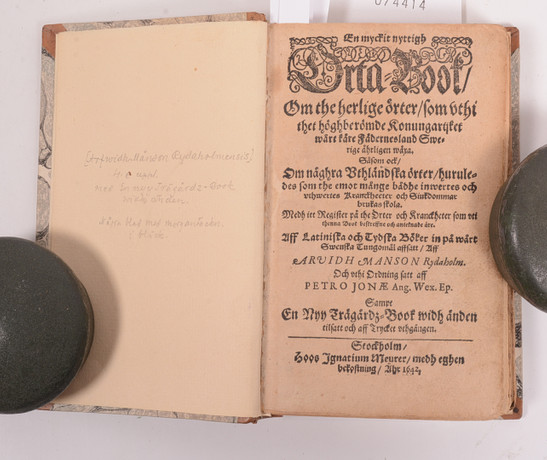 074414
[Arfwidh Månson Rydaholmensis]
4:e uppl.
med En nyy Trägårdz-Book
widh änden.
En myckit nyttigh
Örta-Book/
Om the herlige örter/som vthi
thet höghberömde Konungarijket
wårt käre Fäderneslandh Swe-
rige åhrligen wäxa.
Såsom ock/
Om någhra Vthländska örter/hurule-
des som the emot månge bådhe inwertes och
vthwertes Kranckheeter och Siukdommar
brukas skola.
Medh itt Register på the Örter och Kranckheter som vti
thenna Book beskrefne och antecknade äre.
Aff Latiniska och Tydska Böker in på wårt
Swenska Tungomål affsatt/Aff
ARVIDH MANSON Rydaholm.
Och vthi Ordning satt aff
PETRO JONÆ Ang. Wex. Ep.
Sampt
En Nyy Trägårdz-Book widh änden
tilsatt och aff Trycket vthgången.
Stockholm/
Hoos Ignatium Meurer/medh eghen
bekostning/Åhr 1642.